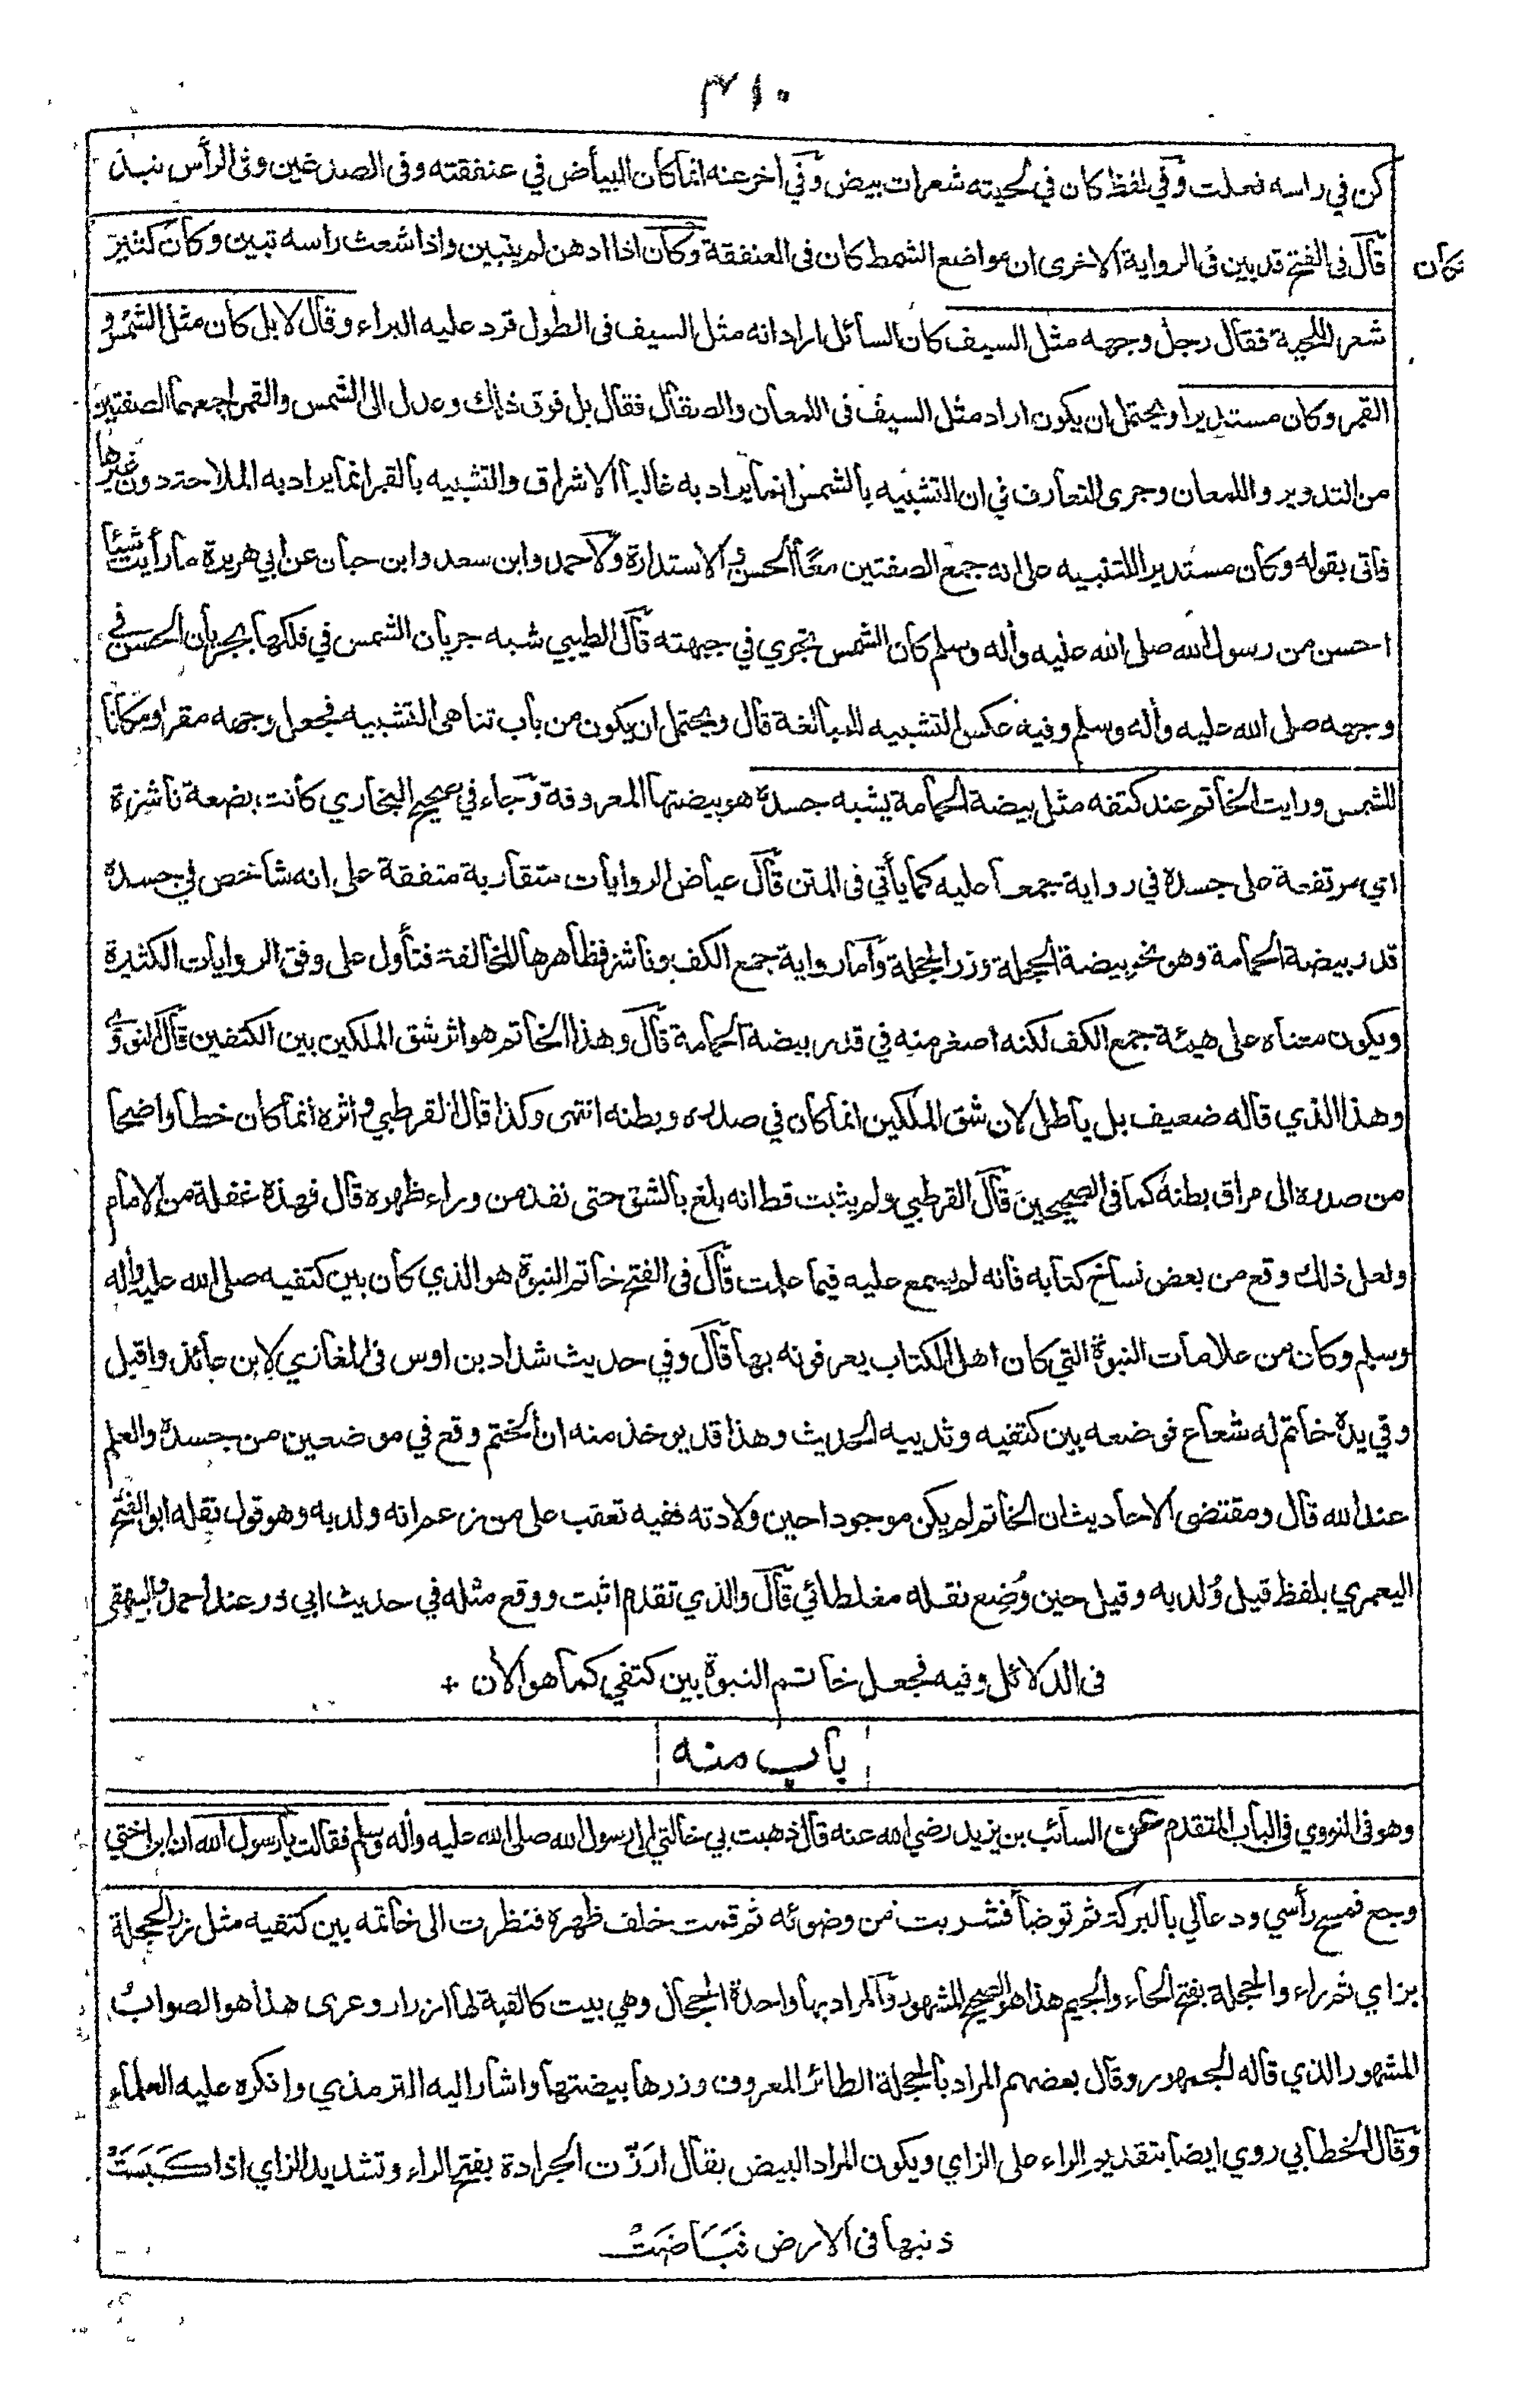 ٣١٠
كن في راسه فعلت وفي لفظ كان في لحيته شعرات بيض وفي اخر عنه انما كان البيأض في عنفقته وفى الصدغين وفى الرأس نبذ
قال فى الفتح قد بين فى الرواية الاخرى ان مواضع الشمط كان فى العنفقة وكان اذا ادهن لم يتبين واذا شعث راسه تبين وكان كثير
شعر اللحية فقال رجل وجهه مثل السيف كان السائل اراد انه مثل السيف فى الطول فرد عليه البراء وقال لا بل كان مثل الشمس و
القمر وكان مستديرا ويحتمل ان يكون اراد مثل السيف فى اللمعان والصقال فقال بل فوق ذلك وعدل الى الشمس والقمر لجمعهما الصفتين
من التدوير واللمعان وجرى التعارف في ان التشبيه بالشمس انما يراد به غالبا الاشراق والتشبيه بالقمر انما يراد به الملاحة دون غيرها
فاتى بقوله وكان مستديرا للتنبيه على انه جمع الصفتين معًا الحسن والاستدارة ولاحمد وابن سعد وابن حبان عن ابي هريرة ما رأيت شيئا
احسن من رسول الله صلى الله عليه وأله وسلم كان الشمس تجري في جبهته قال الطيبي شبه جريان الشمس في فلكها بجريان الحسن في
وجهه صلى الله عليه وأله وسلم وفيه عكس التشبيه للمبالغة قال ويحتمل ان يكون من باب تناهى التشبيه فجعل وجهه مقرا ومكانا
للشمس ورايت الخاتم عند كتفه مثل بيضة الحمامة يشبه جسده هو بيضتها المعروفة وجاء في صحيح البخاري كانت بضعة ناشزة
اي مرتفعة على جسده في رواية جمعا عليه كما يأتي فى المتن قال عياض الروايات متقاربة متفقة على انه شاخص في جسده
قدر بيضة الحمامة وهو نحو بيضة الحجلة وزر الحجلة وأما رواية جمع الكف وناشز فظاهرها المخالفة فتأول على وفق الروايات الكثيرة
ويكون معناه على هيئة جمع الكف لكنه اصغر منه في قدر بيضة الحمامة قال وهذا الخاتم هو اثر شق الملكين بين الكتفين قال النووي
وهذا الذي قاله ضعيف بل باطل لان شق الملكين انما كان في صدره وبطنه انتهى وكذا قال القرطبي و اثره انما كان خطا واضحا
من صدره الى مراق بطنه كما فى الصحيحين قال القرطبي ولم يثبت قط انه بلغ بالشق حتى نفذ من وراء ظهره قال فهذه غفلة من الامام
ولعل ذلك وقع من بعض نساخ كتابه فانه لم يسمع عليه فيما علمت قال فى الفتح خاتم النبوة هو الذي كان بين كتفيه صلى الله عليه وأله
وسلم وكان من علامات النبوة التي كان اهل الكتاب يعرفونه بها قال وفي حديث شداد بن اوس فى المغازي لابن عائذ واقبل
وفي يده خاتم له شعاع فوضعه بين كتفيه وثدييه الحديث وهذا قد يوخذ منه ان الختم وقع في موضعين من جسده والعلم
عند الله قال ومقتضى الاحاديث ان الخاتم لم يكن موجودا حين ولادته ففيه تعقب على من زعم انه ولد به وهو قول نقله ابو الفتح
اليعمري بلفظ قيل وُلد به وقيل حين وُضِع نقله مغلطائي قال والذي تقدم اثبت ووقع مثله في حديث ابي ذر عند احمد والبيهقى
فى الدلائل وفيه فجعل خاتم النبوة بين كتفي كما هو الأن +
باب منه
وهو فى النووي فى الباب المتقدم عن السائب بن يزيد رضي الله عنه قال ذهبت بي خالتي الى رسول الله صلى الله عليه وأله وسلم فقالت يا رسول الله ان ابن اختي
وجع فمسح رأسي ودعا لي بالبركة ثم توضأ فشربت من وضوئه ثم قمت خلف ظهره فنظرت الى خاتمه بين كتفيه مثل زر الحجلة
بزاي ثم راء والحجلة بفتح الحاء والجيم هذا هو الصحيح المشهور والمراد بها واحدة الحجال وهي بيت كالقبة لها ازرار وعرى هذا هو الصواب
المشهور الذي قاله الجمهور وقال بعضهم المراد بالحجلة الطائر المعروف وزرها بيضتها واشار اليه الترمذي وانكره عليه العلماء
وقال الخطابي روي ايضا بتقديم الراء على الزاي ويكون المراد البيض يقال ارَزّت الجرادة بفتح الراء وتشديد الزاي اذا كَبَسَتْ
ذنبها فى الارض فَبَاضَتْ